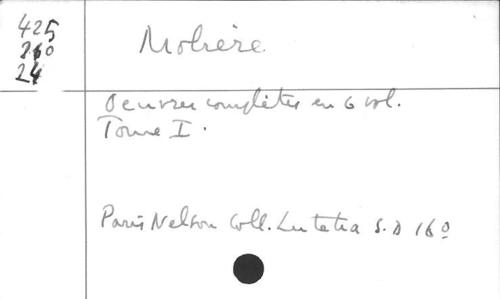 425
260
24
Molière
Oeuvres complètes en 6 vol.
Tome I.
Paris Nelson Coll. Lutetia S.D 16º